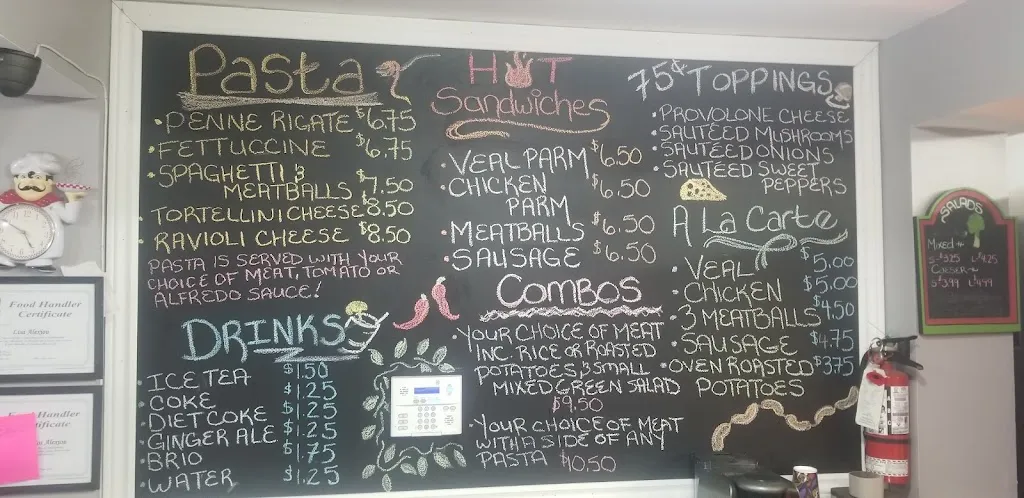 Pasta
• PENNE RIGATE $6.75
• FETTUCCINE $6.75
• SPAGHETTI &
MEATBALLS $7.50
TORTELLINI CHEESE $8.50
RAVIOLI CHEESE $8.50
PASTA IS SERVED WITH YOUR
CHOICE OF MEAT, TOMATO OR
ALFREDO SAUCE!
DRINKS
• ICE TEA $1.50
• COKE $1.25
• DIET COKE $1.25
• GINGER ALE $1.25
• BRIO $1.75
• WATER $1.25
HOT
Sandwiches
• VEAL PARM $6.50
• CHICKEN $6.50
PARM
• MEATBALLS $6.50
• SAUSAGE $6.50
COMBOS
• YOUR CHOICE OF MEAT
INC. RICE OR ROASTED
POTATOES, & SMALL
MIXED GREEN SALAD
$9.50
• YOUR CHOICE OF MEAT
WITH A SIDE OF ANY
PASTA $10.50
75¢ TOPPINGS
• PROVOLONE CHEESE
• SAUTEED MUSHROOMS
• SAUTEED ONIONS
• SAUTEED SWEET
PEPPERS
A La Carte
• VEAL $5.00
• CHICKEN $5.00
• 3 MEATBALLS $4.50
• SAUSAGE $4.75
• OVEN ROASTED $3.75
POTATOES
SALADS
Mixed
S $3.25 L $4.25
Caeser
S $3.99 L $4.99
Food Handler
Certificate
Handler